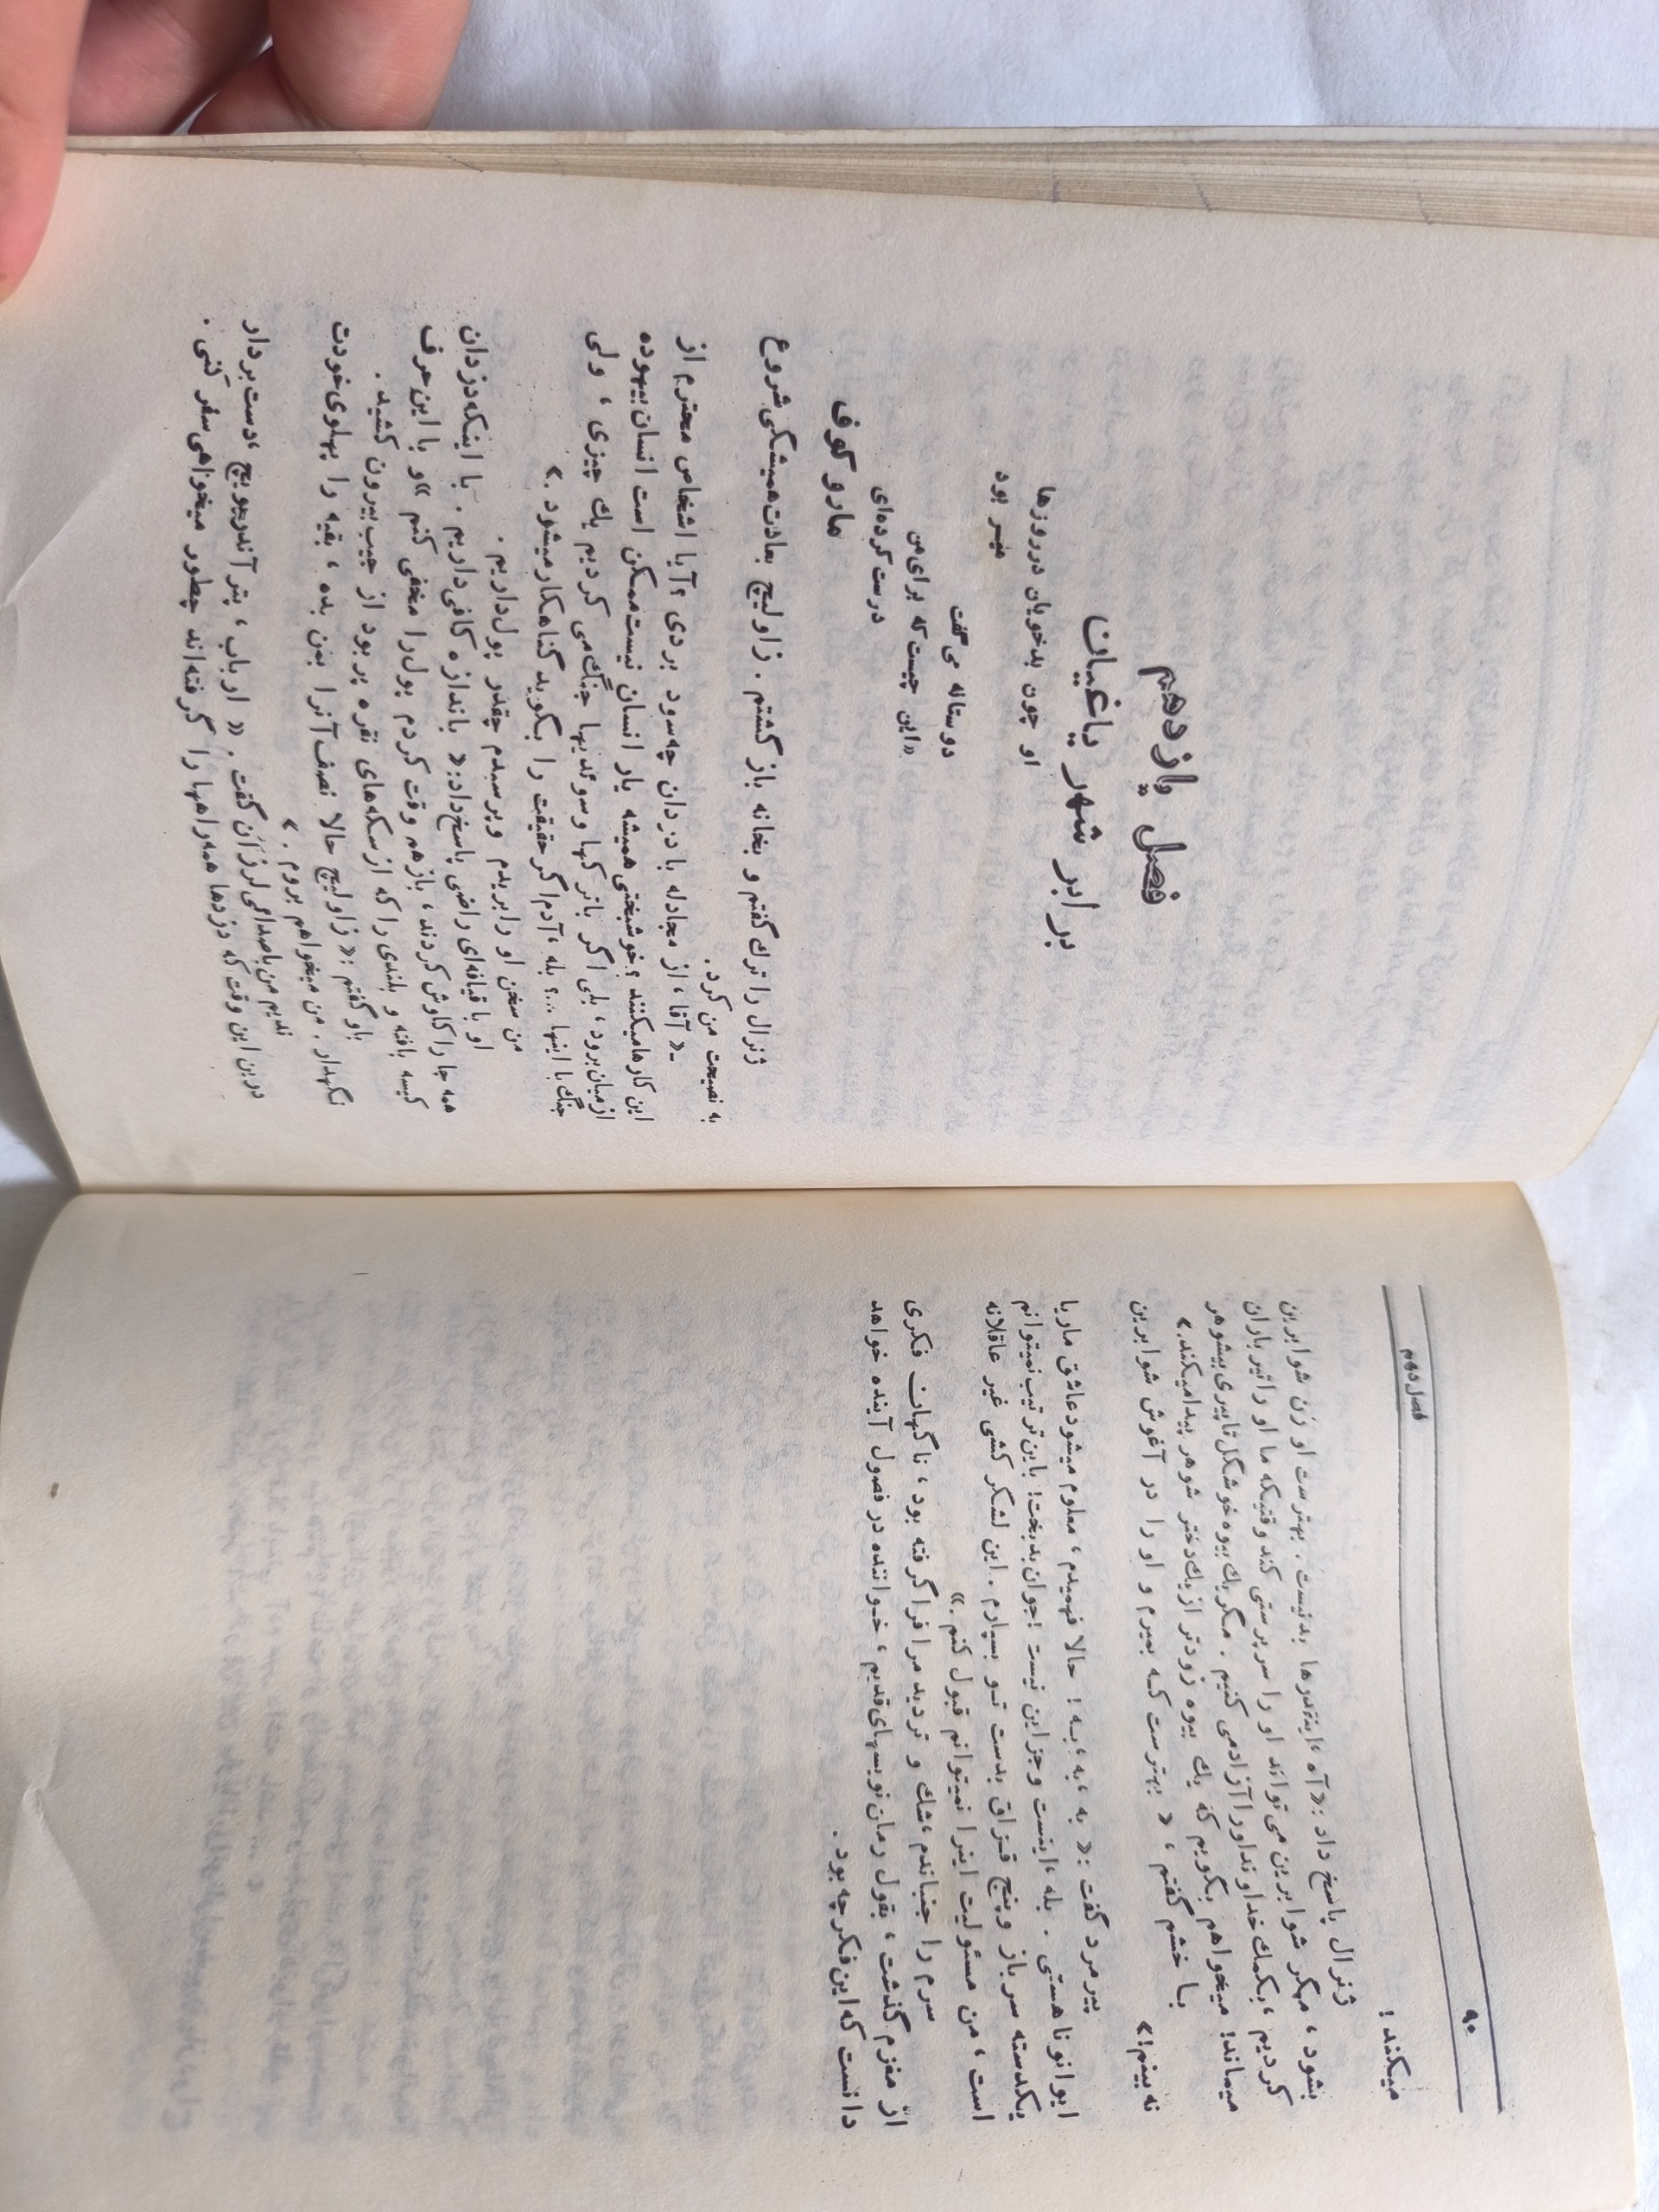 ۹۰
فصل دهم
میکنند!
ژنرال پاسخ داد: «آه، اینقدرها بدنیست. بهترست او زن شوابرین
بشود، مگر شوابرین می‌تواند او را سرپرستی کند وقتیکه ما او را تیرباران
کردیم، بکمك خداوند او را آزاد می کنیم. مگر یك بیوه خوشگل تا پیری بیشوهر
میماند! میخواهم بگویم که یك بیوه زودتر از یك دختر شوهر پیدا میکند.»
با خشم گفتم، «بهترست که بمیرم و او را در آغوش شوابرین
نه بینم!»
پیرمرد گفت: «به، به، به! حالا فهمیدم، معلوم میشود عاشق ماریا
ایوانونا هستی. بله، اینست و جز این نیست! جوان بدبخت! باین ترتیب نمیتوانم
یکدسته سرباز و پنج قزاق بدست تو بسپارم. این لشگر کشی غیر عاقلانه
است، من مسئولیت اینرا نمیتوانم قبول کنم.»
سرم را جنباندم، شك و تردید مرا فرا گرفته بود، ناگهان فکری
از مغزم گذشت، بقول رمان نویسهای قدیم، خواننده در فصول آینده خواهد
دانست که این فکر چه بود.
فصل یازدهم
برابر شهر یاغیان
او چون بدخویان در روزها
میر بود
دوستانه می گفت
«این چیست که برای من
درست کرده‌ای
ماروکوف
ژنرال را ترك گفتم و بخانه بازگشتم. زاولیچ بعادت همیشگی شروع
به نصیحت من کرد.
ـ «آقا، از مجادله با دزدان چه سود بردی؟ آیا اشخاص محترم از
این کارها میکنند؟ خوشبختی همیشه یار انسان نیست ممکن است انسان بیهوده
از میان برود، بلی اگر باتر کها و سوئدیها جنگ می کردیم یك چیزی، ولی
جنگ با اینها...؟ بله، آدم اگر حقیقت را بگوید گناهکار میشود.»
من سخن او را بریدم و پرسیدم چقدر پول داریم.
او با قیافه‌ای راضی پاسخ داد: «باندازه کافی داریم. با اینکه دزدان
همه جا را کاوش کردند، بازهم وقت کردم پول را مخفی کنم» و با این حرف
کیسه بافته و بلندی را که از سکه‌های نقره پر بود از جیب بیرون کشید.
باو گفتم: «زاولیچ حالا نصف آنرا بمن بده، بقیه را پهلوی خودت
نگهدار. من میخواهم بروم.»
ندیم من باصدائی لرزان گفت. «ارباب، پتر آندریویچ، دست بردار
در این وقت که دزدها همه راهها را گرفته‌اند چطور میخواهی سفر کنی.